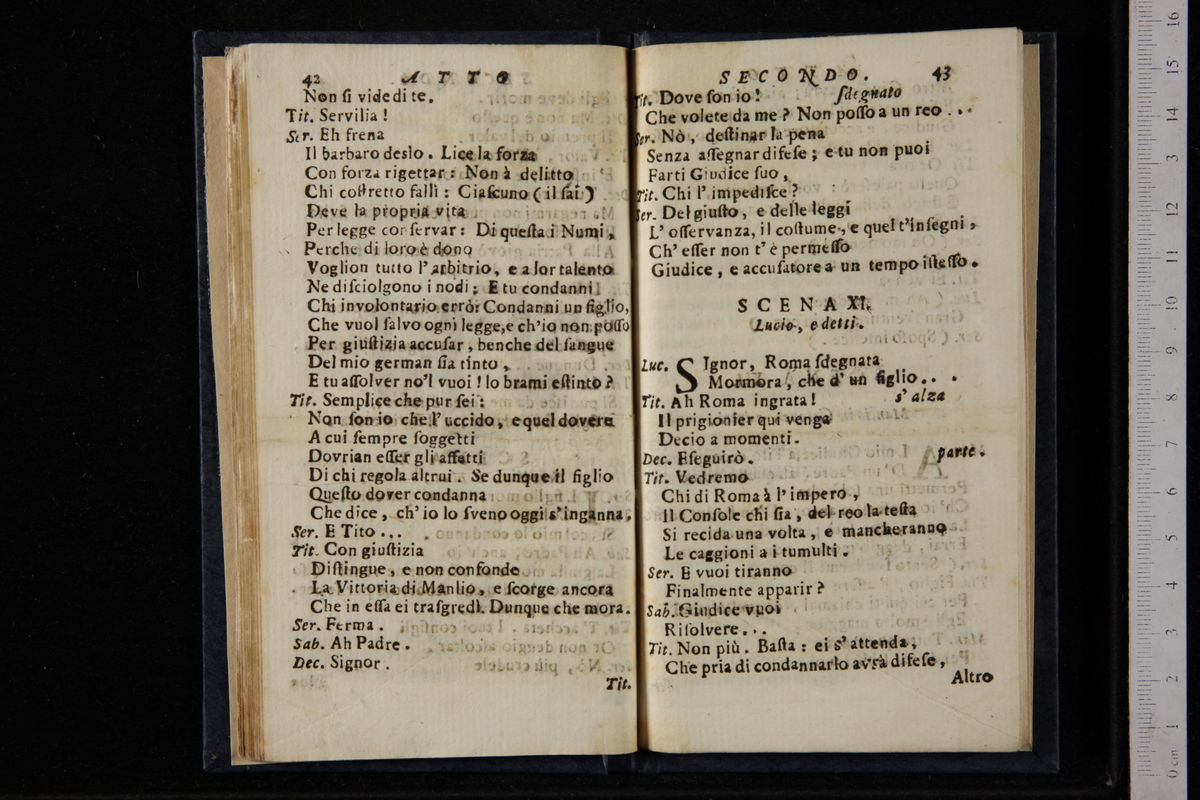 42 ATTO
Non ſi vide di te.
Tit. Servilia!
Ser. Eh frena
Il barbaro desìo. Lice la forza
Con forza rigettar: Non à delitto
Chi coſtretto fallì: Ciaſcuno (il ſai)
Deve la propria vita
Per legge conſervar: Di queſta i Numi,
Perche di loro è dono
Voglion tutto l'arbitrio, e a lor talento
Ne diſciolgono i nodi: E tu condanni
Chi involontario errò: Condanni un figlio,
Che vuol ſalvo ogni legge, e ch'io non poſſo
Per giuſtizia accuſar, benche del ſangue
Del mio german ſia tinto,
E tu aſſolver no'l vuoi! lo brami eſtinto?
Tit. Semplice che pur ſei:
Non ſon io che l'uccido, e quel dovere
A cui ſempre ſoggetti
Dovrian eſſer gli affetti
Di chi regola altrui. Se dunque il figlio
Queſto dover condanna
Che dice, ch'io lo ſveno oggi s'inganna.
Ser. E Tito...
Tit. Con giuſtizia
Diſtingue, e non confonde
La Vittoria di Manlio, e ſcorge ancora
Che in eſſa ei traſgredì. Dunque che mora.
Ser. Ferma.
Sab. Ah Padre.
Dec. Signor.
Tit.
SECONDO. 43
Tit. Dove ſon io! ſdegnato
Che volete da me? Non poſſo a un reo...
Ser. Nò, deſtinar la pena
Senza aſſegnar difeſe; e tu non puoi
Farti Giudice ſuo,
Tit. Chi l'impediſce?
Ser. Del giuſto, e delle leggi
L'oſſervanza, il coſtume, e quel t'inſegni,
Ch'eſſer non t'è permeſſo
Giudice, e accuſatore a un tempo iſteſſo.
SCENA XI.
Lucio, e detti.
Luc. SIgnor, Roma ſdegnata
Mormora, che d'un figlio...
Tit. Ah Roma ingrata! s'alza
Il prigionier qui venga
Decio a momenti.
Dec. Eſeguirò. parte.
Tit. Vedremo
Chi di Roma à l'impero,
Il Conſole chi ſia, del reo la teſta
Si recida una volta, e mancheranno
Le caggioni a i tumulti.
Ser. E vuoi tiranno
Finalmente apparir?
Sab. Giudice vuoi
Riſolvere...
Tit. Non più. Baſta: ei s'attenda,
Che pria di condannarlo avrà difeſe,
Altro
0 cm 1 2 3 4 5 6 7 8 9 10 11 12 13 14 15 16